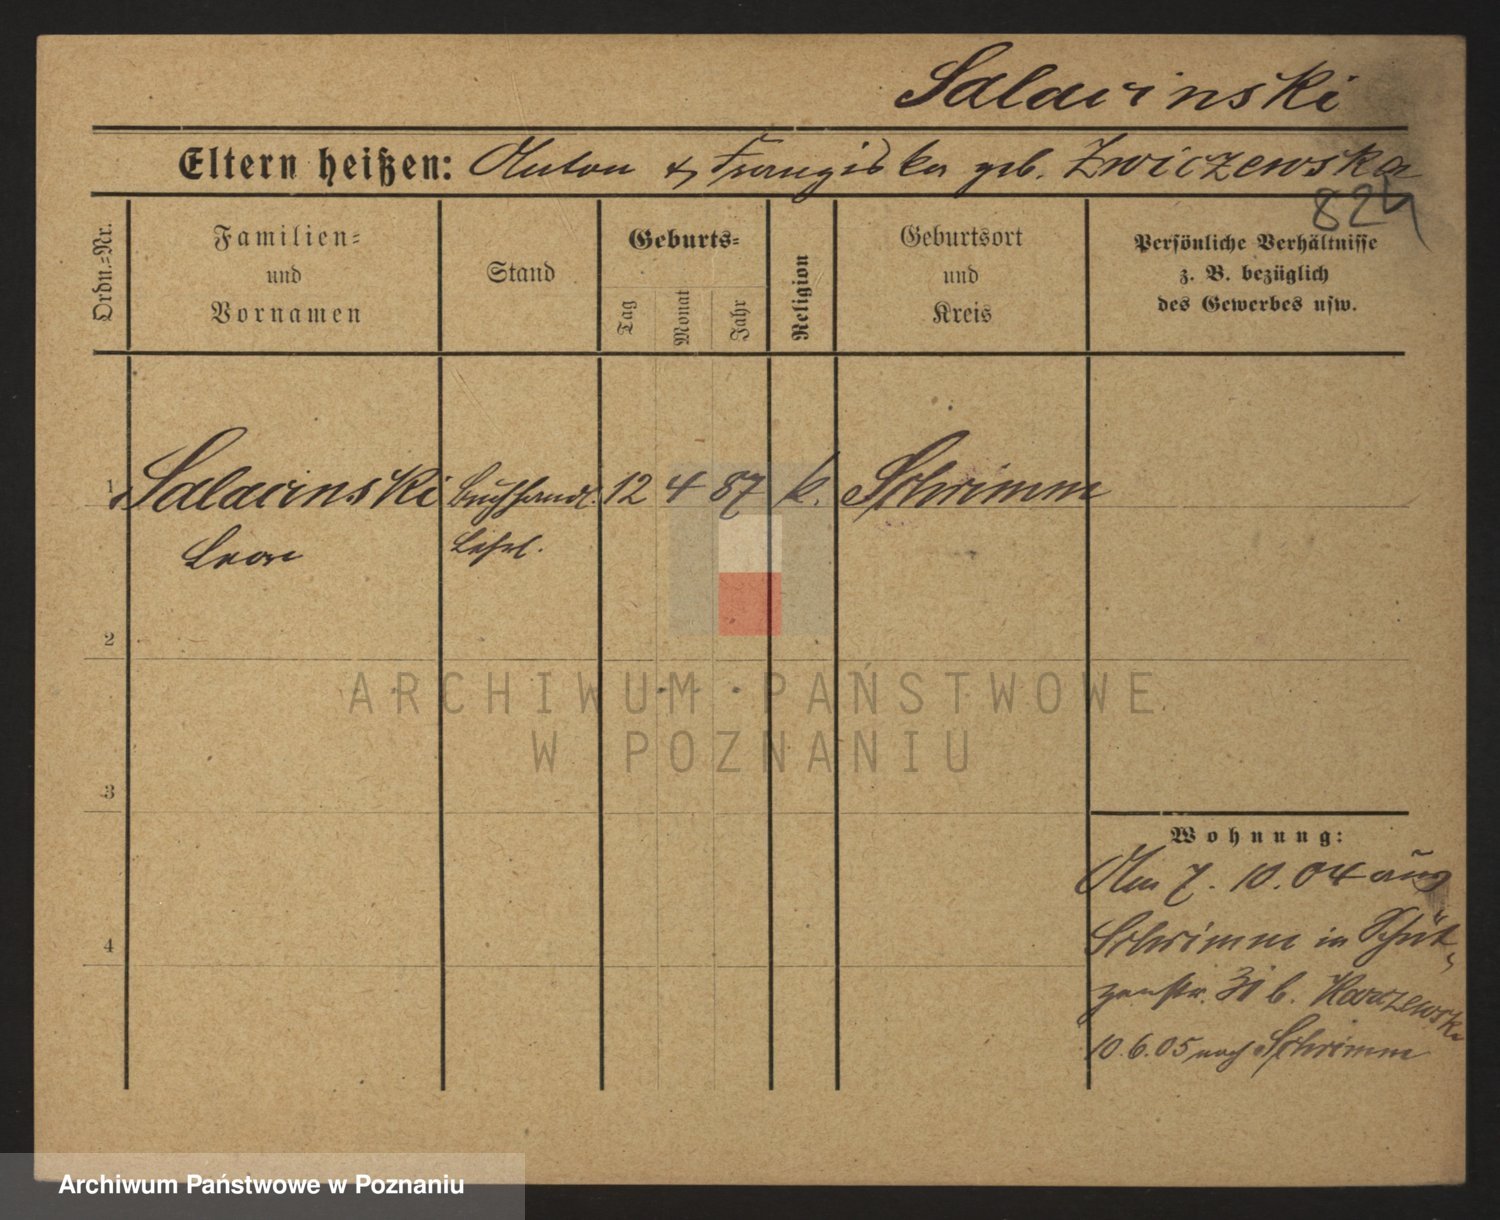 Salacinski
Eltern heißen: Anton & Franziska geb. Zwiczewska
824
Ordn.=Nr.
Familien=
und
Vornamen
Stand
Geburts=
Tag
Monat
Jahr
Religion
Geburtsort
und
Kreis
Persönliche Verhältnisse
z. B. bezüglich
des Gewerbes usw.
1 Salacinski Buchhandl. 12 4 87 k. Schrimm
Leon Lehrl.
2
ARCHIWUM PAŃSTWOWE
W POZNANIU
3
Wohnung:
Am 7. 10. 04 aus
4 Schrimm in Schüt-
zenstr. 31 b.
10.6.05 nach Schrimm
Archiwum Państwowe w Poznaniu